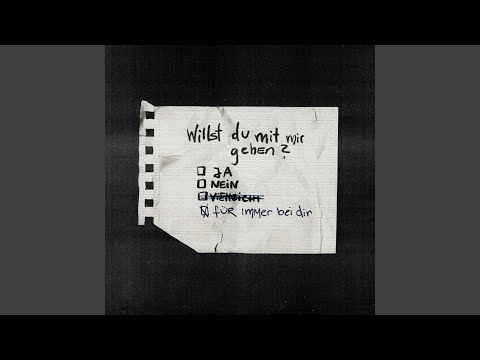 Willst du mit mir
gehen?
JA
NEIN
für immer bei dir